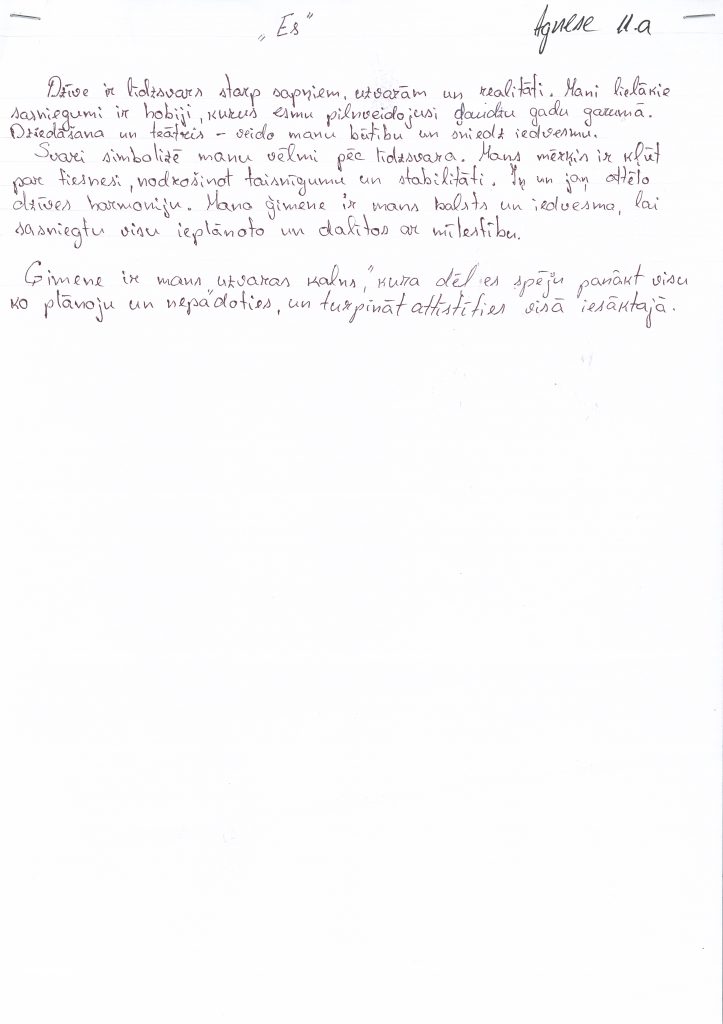 „Es” Agnese 11.a
Dzīve ir līdzsvars starp sapņiem, uzvarām un realitāti. Mani lielākie
sasniegumi ir hobiji, kurus esmu pilnveidojusi daudzu gadu garumā.
Dziedāšana un teātris – veido manu būtību un sniedz iedvesmu.
Svari simbolizē manu vēlmi pēc līdzsvara. Mans mērķis ir kļūt
par tiesnesi, nodrošinot taisnīgumu un stabilitāti. Iņ un jaņ attēlo
dzīves harmoniju. Mana ģimene ir mans balsts un iedvesma, lai
sasniegtu visu ieplānoto un dalītos ar mīlestību.
Ģimene ir mans uzvaras kalns," kura dēļ es spēju panākt visu
ko plānoju un nepadoties, un turpināt attīstīties visā iesāktajā.